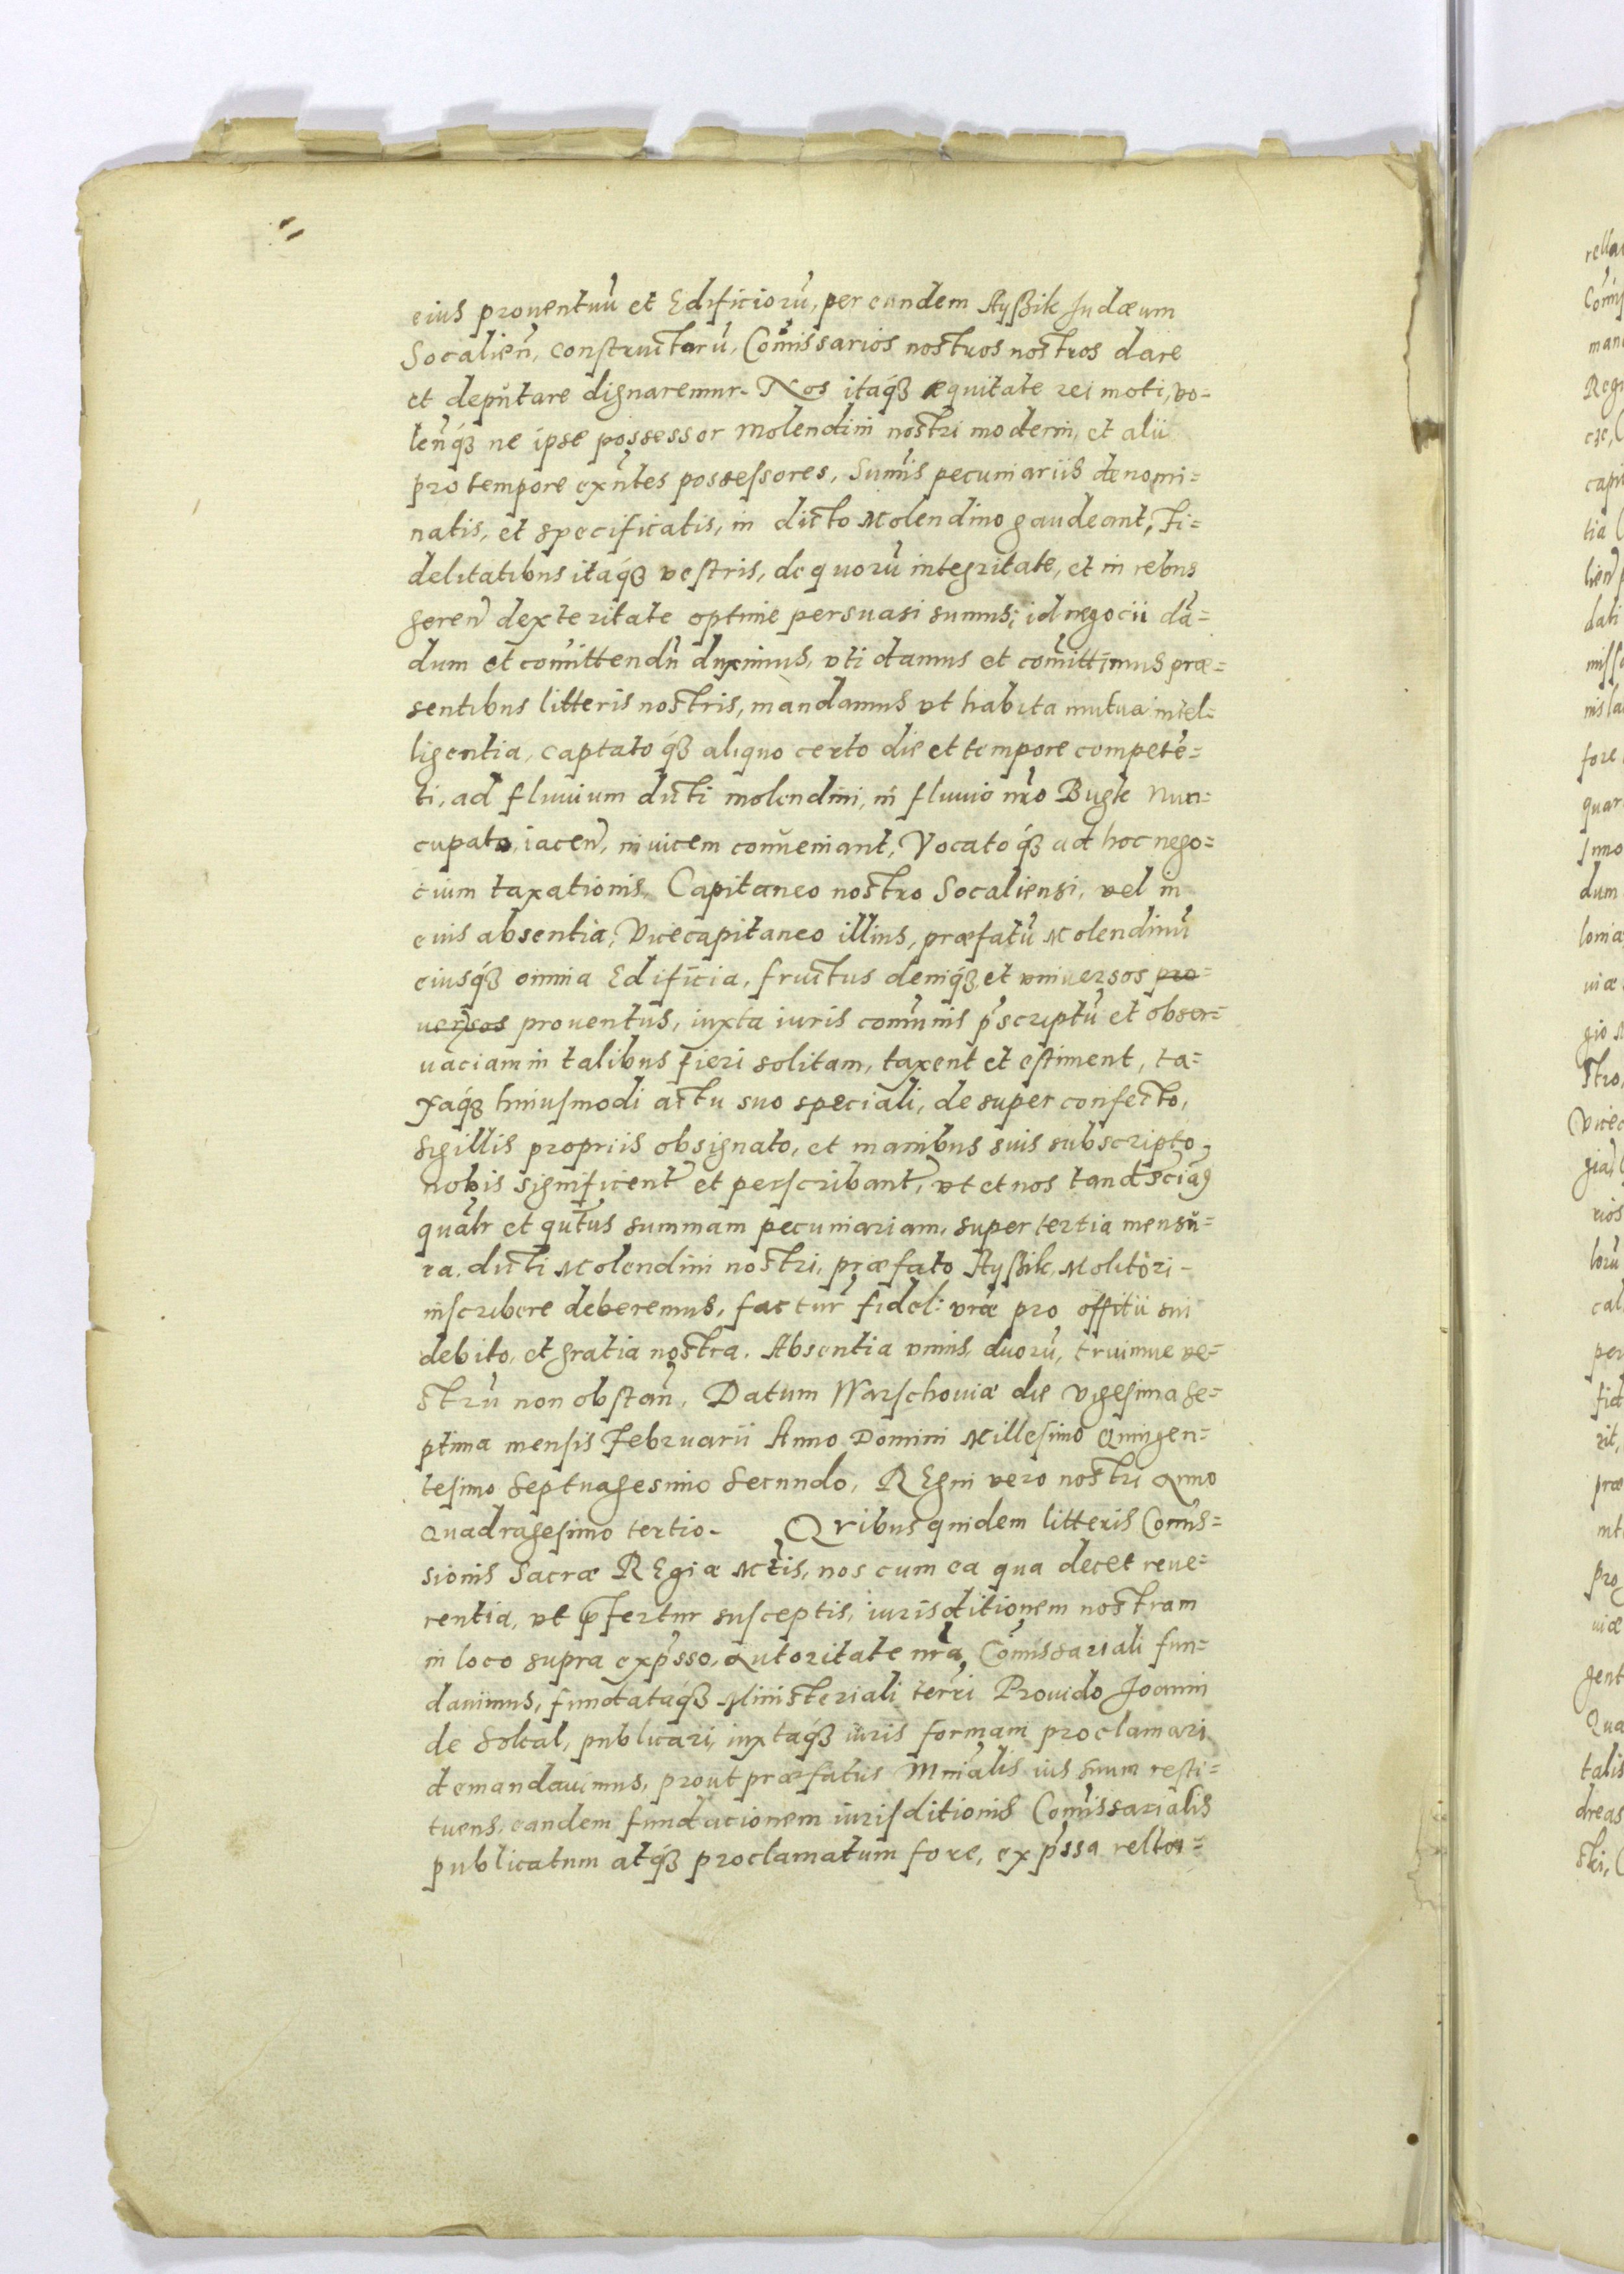 eius prouentuū et Edificiorū, per eundem Ayßik Judæum
Socalien̄, constructorū, Com̄issarios nostros nostros dare
et deputare dignaremur. Nos itaq́ꝫ æquitate rei moti, vo=
len̄q́ꝫ ne ipse possessor molendini nostri moderni, et alii
pro tempore exn̄tes possessores, Sum̄is pecuniariis denomi=
natis, et specificatis, in dicto Molendino gaudeant, Fi=
delitatibus itaq́ꝫ vestris, de quorū integritate, et in rebus
geren̄ dexteritate optime persuasi sumus; id negocii dā=
dum et com̄ittendū duximus, vti damus et com̄ittimus præ=
sentibus litteris nostris, mandamus vt habita mutua intel=
ligentia, captatoq́ꝫ aliquo certo die et tempore competē=
ti, ad fluuium dicti molendini, in fluuio nr̄o Bugk nun=
cupato, iacen̄, inuicem conueniant, Vocatoq́ꝫ ad hoc nego=
cium taxationis, Capitaneo nostro Socaliensi, vel in
euis absentia, Vicecapitaneo illius, præfatū Molendinū
eiusq́ꝫ omnia Edificia, fructus deniq́ꝫ et vniuersos pro=
uersos prouentus, iuxta iuris com̄unis p̄scriptū et obser=
uaciam in talibus fieri solitam, taxent et estiment, ta=
xaq́ꝫ huiusmodi actu suo speciali, desuper confecto,
Sigillis propriis obsignato, et manibus suis subscripto,
nobis significent et perscribant, vt et nos tand sciaꝫ
quālr et qūtus summam pecuniariam, super tertia mensu=
ra, dicti Molendini nostri, præfato Ayßik, Molitori
inscribere deberemus, factur̄ fidel: vrāe pro offitii sui
debito, et gratia nostra. Absentia vnius, duorū, triumue ve=
strū non obstan̄, Datum Warschouiæ die vigesima se=
ptima mensis Februarii Anno Domini Millesimo Quingen=
tesimo Septuagesimo Secundo, REgni vero nostri Anno
Quadragesimo tertio. Qvibus quidem litteris Com̄is=
sionis Sacræ REgiæ Mt̄is, nos cum ea qua decet reue=
rentia, vt p̄fertur susceptis, iurisditionem nostram
in loco supra exp̄sso, Autoritate nrā, Com̄issariali fun=
dauimus, fundataq́ꝫ Ministeriali terrī Prouido Joanni
de Sokal, publicari, iuxtaq́ꝫ iuris formam proclamari
demandauimus, prout præfatus Mnīalis ius suum resti=
tuens, eandem fundacionem iurisditionis Com̄issarialis
publicatum atq́ꝫ proclamatum fore, exp̄ssa rella=